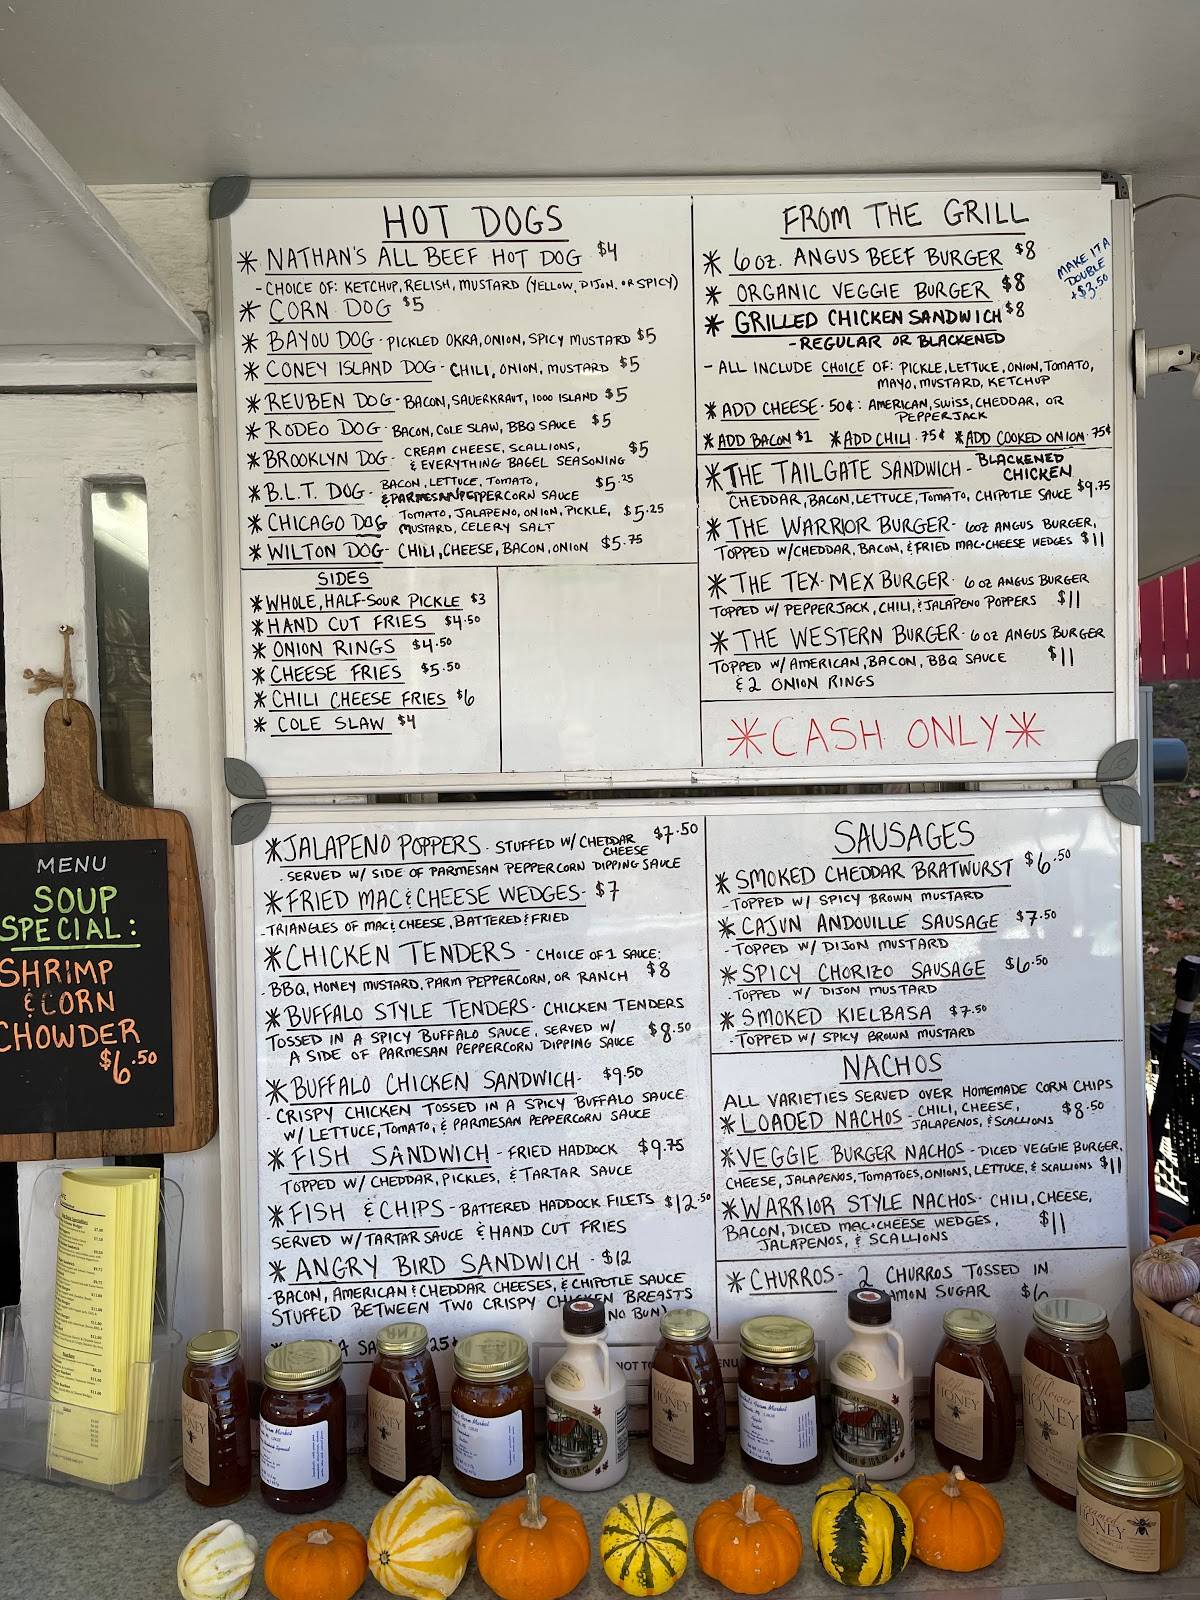 HOT DOGS
* NATHAN'S ALL BEEF HOT DOG $4
- CHOICE OF: KETCHUP, RELISH, MUSTARD (YELLOW, DIJON, OR SPICY)
* CORN DOG $5
* BAYOU DOG - PICKLED OKRA, ONION, SPICY MUSTARD $5
* CONEY ISLAND DOG - CHILI, ONION, MUSTARD $5
* REUBEN DOG - BACON, SAUERKRAUT, 1000 ISLAND $5
* RODEO DOG - BACON, COLE SLAW, BBQ SAUCE $5
* BROOKLYN DOG - CREAM CHEESE, SCALLIONS,
& EVERYTHING BAGEL SEASONING $5
* B.L.T. DOG - BACON, LETTUCE, TOMATO,
& PARMESAN PEPPERCORN SAUCE $5.25
* CHICAGO DOG TOMATO, JALAPENO, ONION, PICKLE,
MUSTARD, CELERY SALT $5.25
* WILTON DOG - CHILI, CHEESE, BACON, ONION $5.75
SIDES
* WHOLE, HALF-SOUR PICKLE $3
* HAND CUT FRIES $4.50
* ONION RINGS $4.50
* CHEESE FRIES $5.50
* CHILI CHEESE FRIES $6
* COLE SLAW $4
FROM THE GRILL
* 6 OZ. ANGUS BEEF BURGER $8
* ORGANIC VEGGIE BURGER $8
* GRILLED CHICKEN SANDWICH $8
- REGULAR OR BLACKENED
MAKE IT A
DOUBLE
+$3.50
- ALL INCLUDE CHOICE OF: PICKLE, LETTUCE, ONION, TOMATO,
MAYO, MUSTARD, KETCHUP
* ADD CHEESE - 50¢: AMERICAN, SWISS, CHEDDAR, OR
PEPPERJACK
* ADD BACON $1 * ADD CHILI 75¢ * ADD COOKED ONION 75¢
* THE TAILGATE SANDWICH - BLACKENED
CHICKEN
CHEDDAR, BACON, LETTUCE, TOMATO, CHIPOTLE SAUCE $9.75
* THE WARRIOR BURGER - 6OZ ANGUS BURGER,
TOPPED W/CHEDDAR, BACON, & FRIED MAC+CHEESE WEDGES $11
* THE TEX-MEX BURGER - 6 OZ ANGUS BURGER
TOPPED W/ PEPPERJACK, CHILI, & JALAPENO POPPERS $11
* THE WESTERN BURGER - 6 OZ ANGUS BURGER
TOPPED W/ AMERICAN, BACON, BBQ SAUCE $11
& 2 ONION RINGS
* CASH ONLY *
* JALAPENO POPPERS - STUFFED W/ CHEDDAR
CHEESE $7.50
- SERVED W/ SIDE OF PARMESAN PEPPERCORN DIPPING SAUCE
* FRIED MAC & CHEESE WEDGES - $7
- TRIANGLES OF MAC & CHEESE, BATTERED & FRIED
* CHICKEN TENDERS - CHOICE OF 1 SAUCE:
- BBQ, HONEY MUSTARD, PARM PEPPERCORN, OR RANCH $8
* BUFFALO STYLE TENDERS - CHICKEN TENDERS
TOSSED IN A SPICY BUFFALO SAUCE, SERVED W/
A SIDE OF PARMESAN PEPPERCORN DIPPING SAUCE $8.50
* BUFFALO CHICKEN SANDWICH - $9.50
- CRISPY CHICKEN TOSSED IN A SPICY BUFFALO SAUCE
W/ LETTUCE, TOMATO, & PARMESAN PEPPERCORN SAUCE
* FISH SANDWICH - FRIED HADDOCK $9.75
TOPPED W/ CHEDDAR, PICKLES, & TARTAR SAUCE
* FISH & CHIPS - BATTERED HADDOCK FILETS $12.50
SERVED W/ TARTAR SAUCE & HAND CUT FRIES
* ANGRY BIRD SANDWICH - $12
- BACON, AMERICAN & CHEDDAR CHEESES, & CHIPOTLE SAUCE
STUFFED BETWEEN TWO CRISPY CHICKEN BREASTS
NO BUN)
25¢
SAUSAGES
* SMOKED CHEDDAR BRATWURST $6.50
- TOPPED W/ SPICY BROWN MUSTARD
* CAJUN ANDOUILLE SAUSAGE $7.50
- TOPPED W/ DIJON MUSTARD
* SPICY CHORIZO SAUSAGE $6.50
- TOPPED W/ DIJON MUSTARD
* SMOKED KIELBASA $7.50
- TOPPED W/ SPICY BROWN MUSTARD
NACHOS
ALL VARIETIES SERVED OVER HOMEMADE CORN CHIPS
* LOADED NACHOS - CHILI, CHEESE,
JALAPENOS, & SCALLIONS $8.50
* VEGGIE BURGER NACHOS - DICED VEGGIE BURGER,
CHEESE, JALAPENOS, TOMATOES, ONIONS, LETTUCE, & SCALLIONS $11
* WARRIOR STYLE NACHOS - CHILI, CHEESE,
BACON, DICED MAC+CHEESE WEDGES, $11
JALAPENOS, & SCALLIONS
* CHURROS - 2 CHURROS TOSSED IN
SUGAR $6
MENU
SOUP
SPECIAL:
SHRIMP
& CORN
CHOWDER
$6.50
HONEY
HONEY
HONEY
HONEY
HONEY
Creamed
HONEY